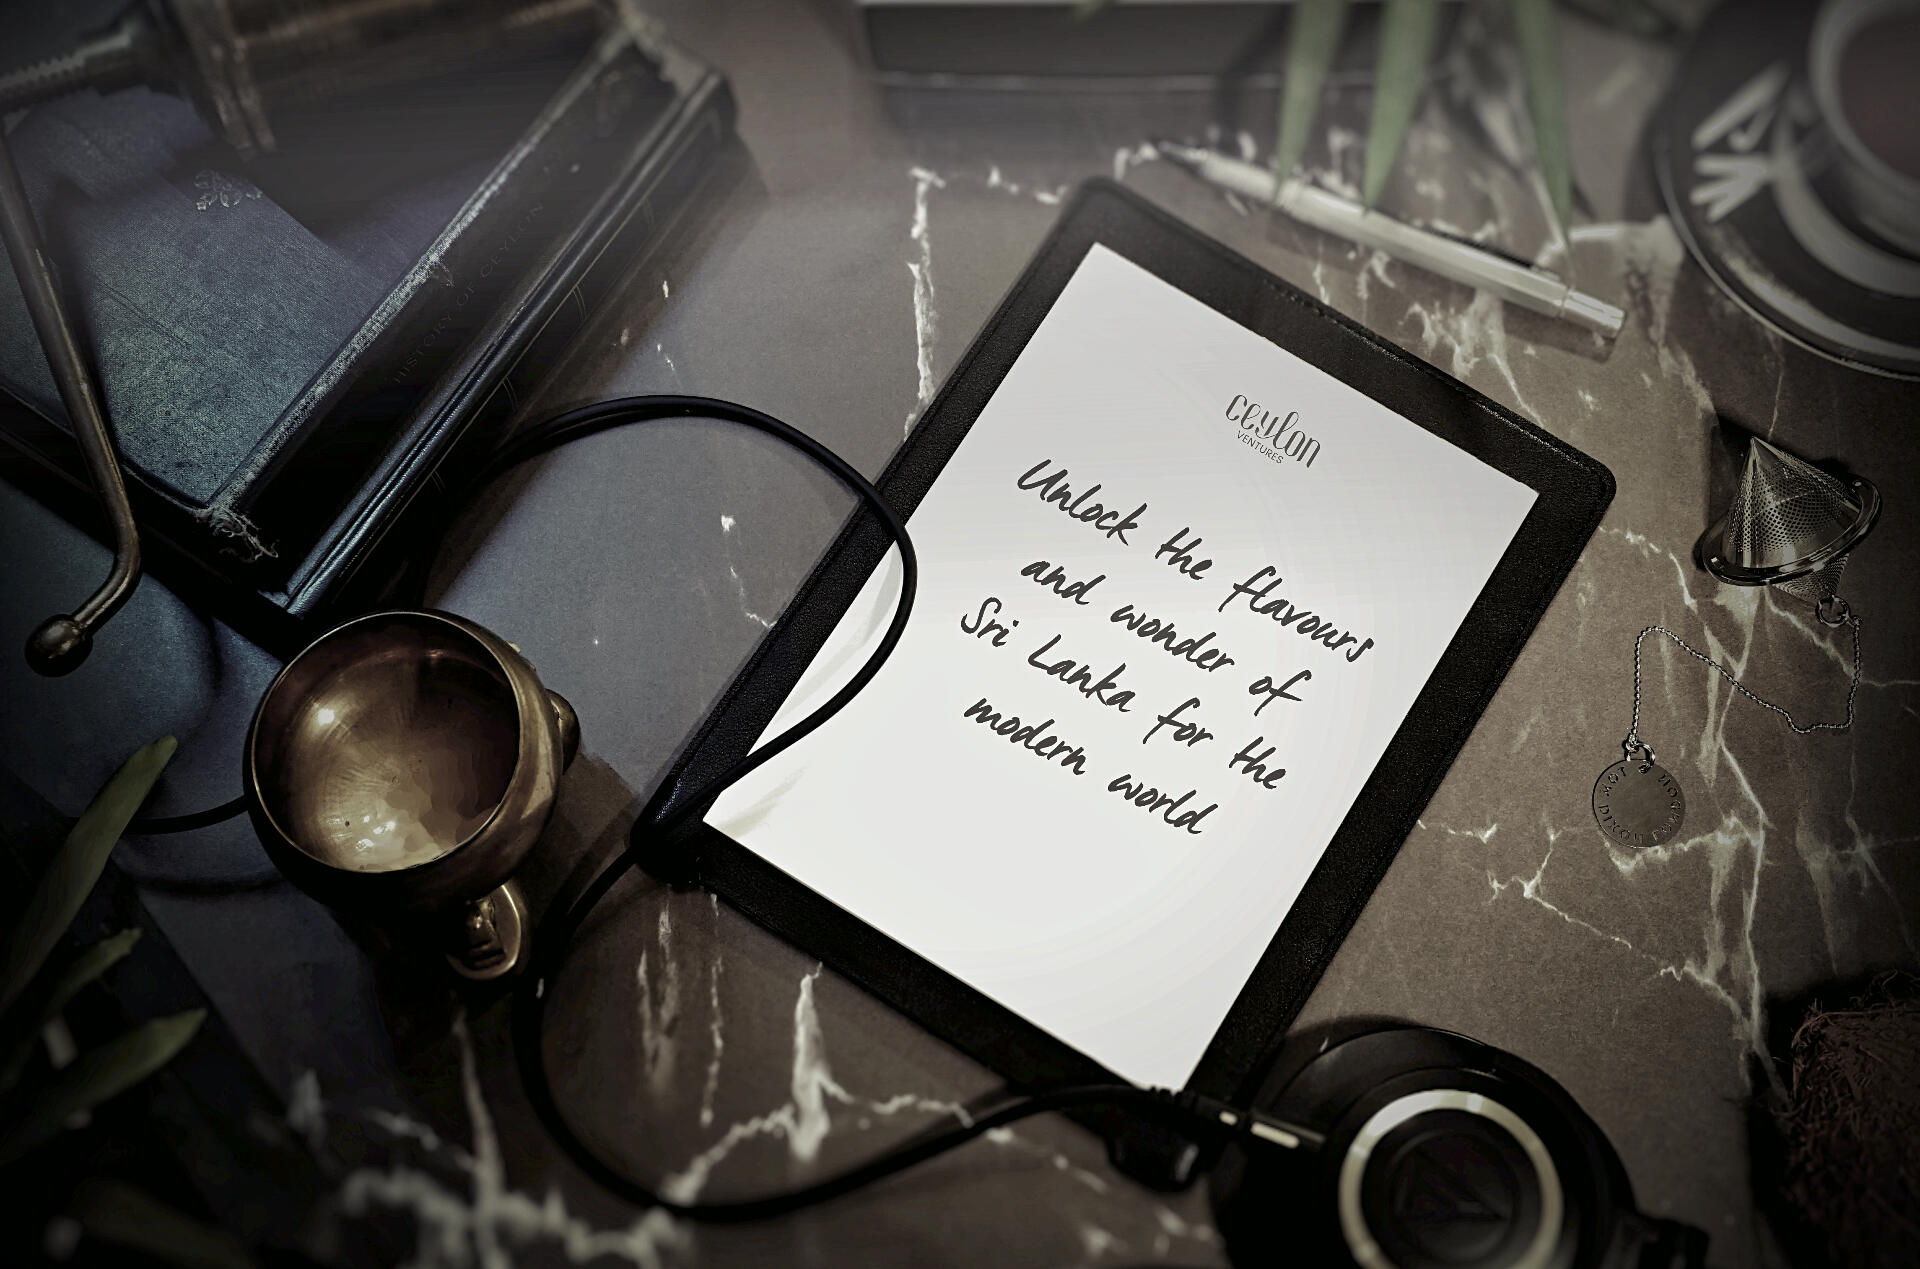 HISTORY OF CEYLON
ceylon
VENTURES
Unlock the flavours
and wonder of
Sri Lanka for the
modern world